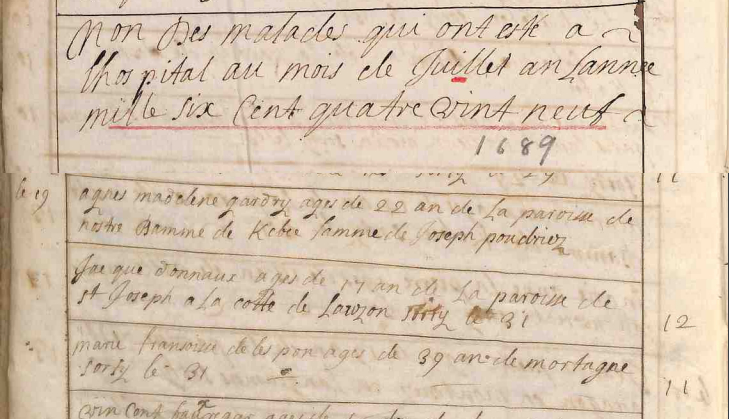 Non Des malades qui ont esté a
lhospital au mois de Juillet an Lannee
mille six Cent quatre vint neuf
1689
11
le 19 agnes madelene gaudry ages de 22 an de La paroisse de
nostre Damme de Kebec famme de Joseph poudrier
Jacque Donnaux ages de 17 an de La paroisse de
st Joseph a la coste de Lawzon sorty le 31
12
marie fransoise de les pon ages de 39 an de mortagne
sorty le 31
11
vin Cent ages de